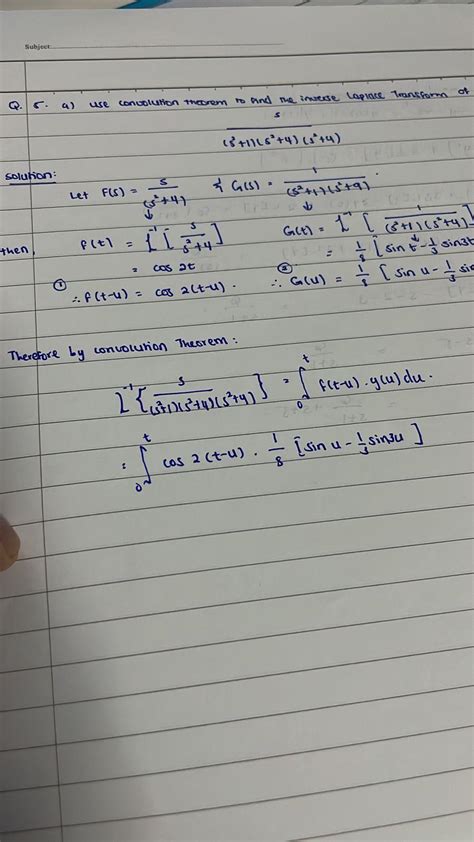 Subject
Q. 5. a) Use convolution theorem to find the inverse Laplace Transform of
s
(s²+1)(s²+4)(s²+9)
Solution:
Let F(s) = s/(s²+4) & G(s) = 1/(s²+1)(s²+9).
then, f(t) = L⁻¹[s/s²+4] G(t) = L⁻¹[1/(s²+1)(s²+9)]
= cos 2t = 1/8 [sin t - 1/3 sin3
① ∴ f(t-u) = cos 2(t-u). ② ∴ G(u) = 1/8 [sin u - 1/3 sin
Therefore by convolution Theorem:
L⁻¹{s/(s²+1)(s²+4)(s²+9)} = ∫₀ᵗ f(t-u).g(u)du.
= ∫₀ᵗ cos 2(t-u) . 1/8 [sin u - 1/3 sin3u]